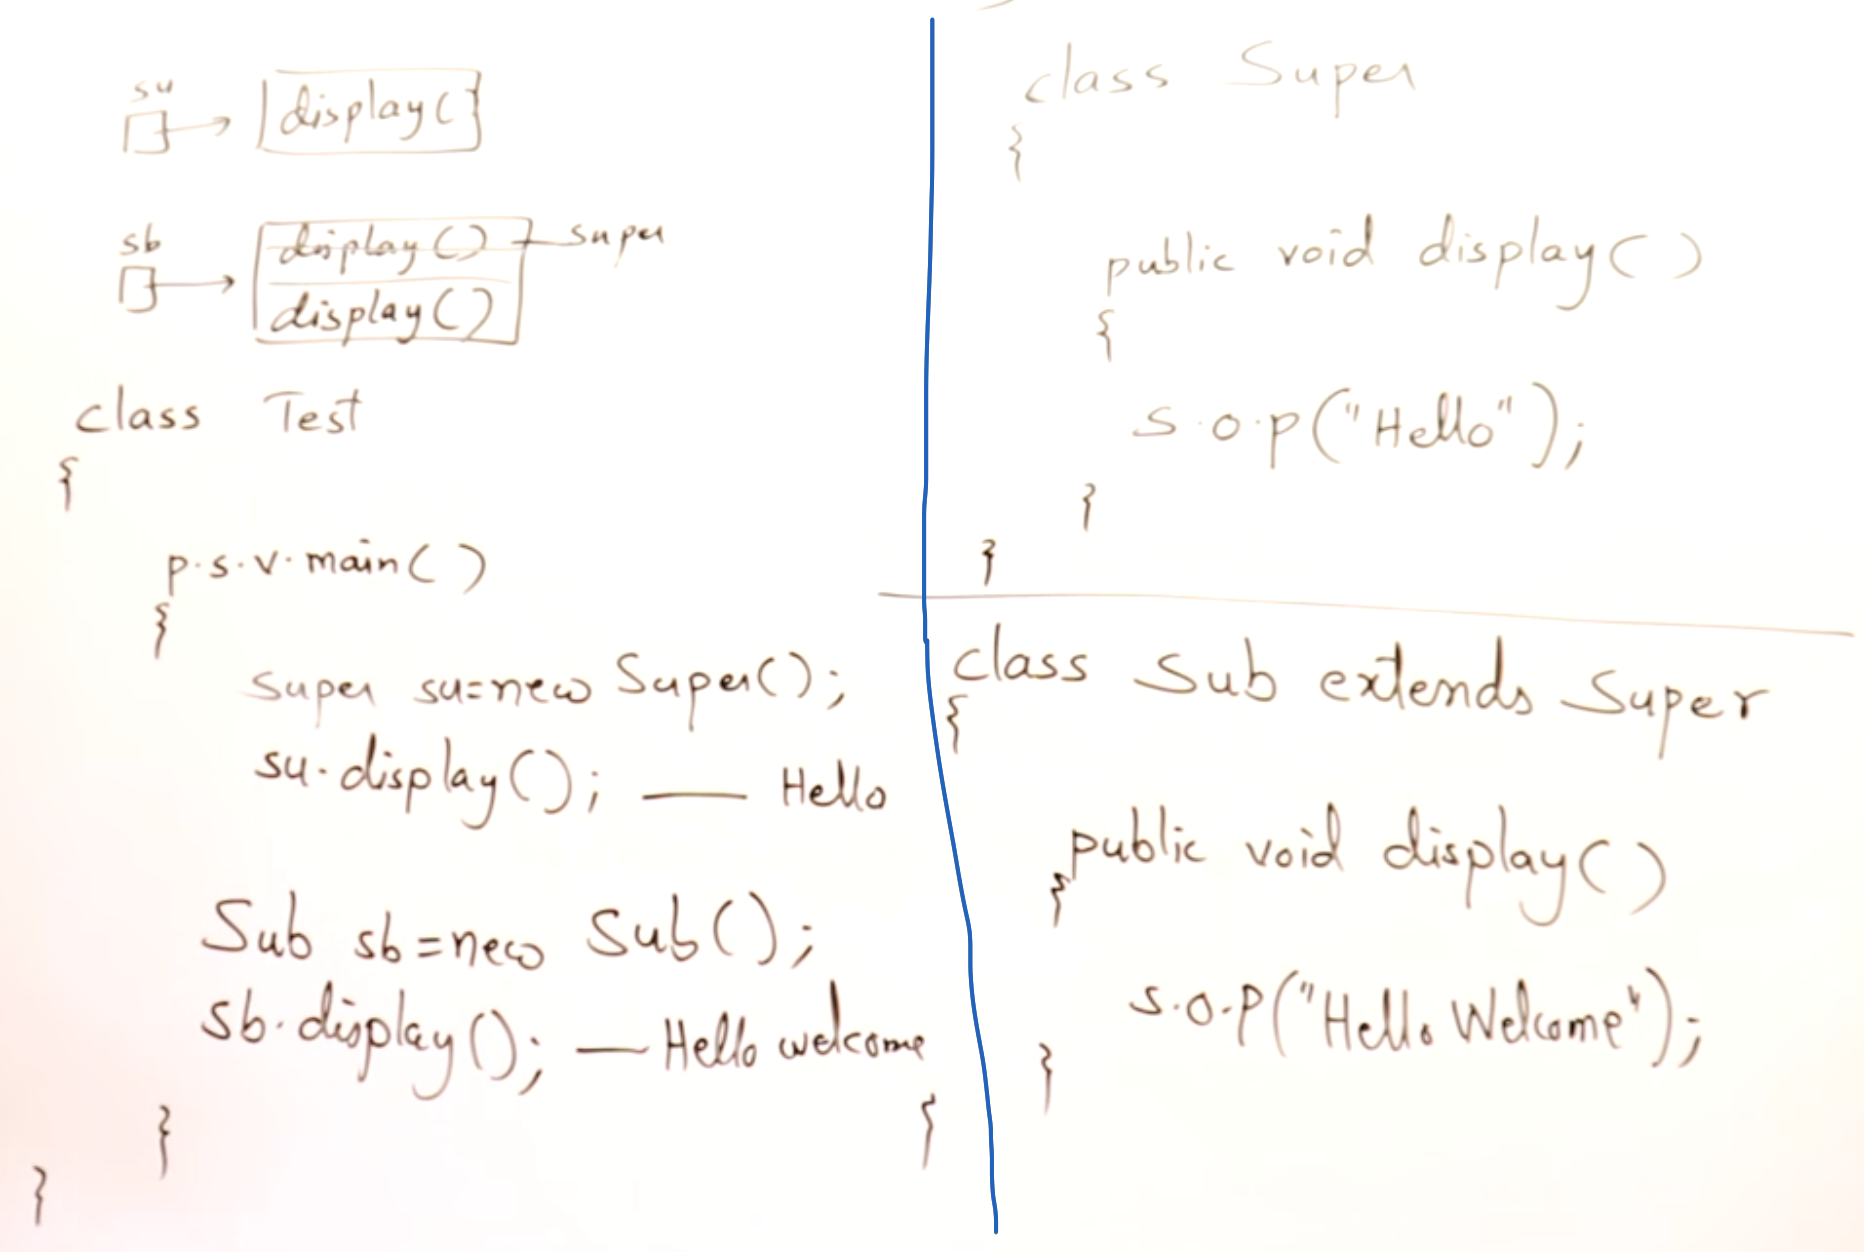 su
display()
sb
display() super
display()
class Test
{
p.s.v.main()
{
Super su=new Super();
su.display(); — Hello
Sub sb=new Sub();
sb.display(); — Hello welcome
}
}
class Super
{
public void display()
{
s.o.p("Hello");
}
}
class Sub extends Super
{
public void display()
{
s.o.p("Hello Welcome");
}
}